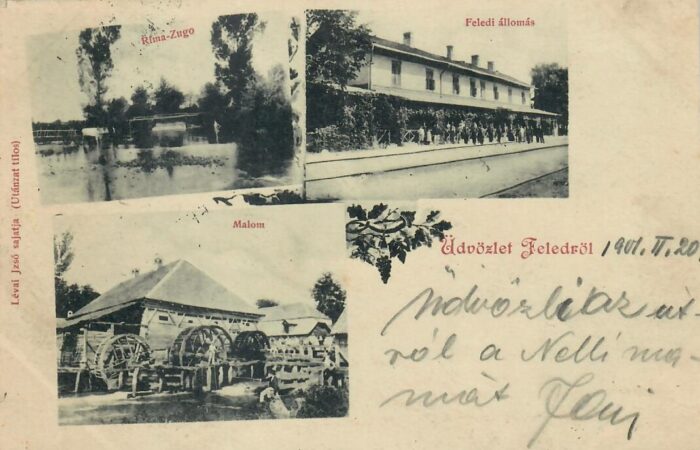 Rima-Zugo
Feledi állomás
Lévai Jzsó sajatja (Utánzat tilos)
Malom
Üdvözlet Feledről 1901. II. 20.
Üdvözli az út-
ról a Nelli ma-
mát